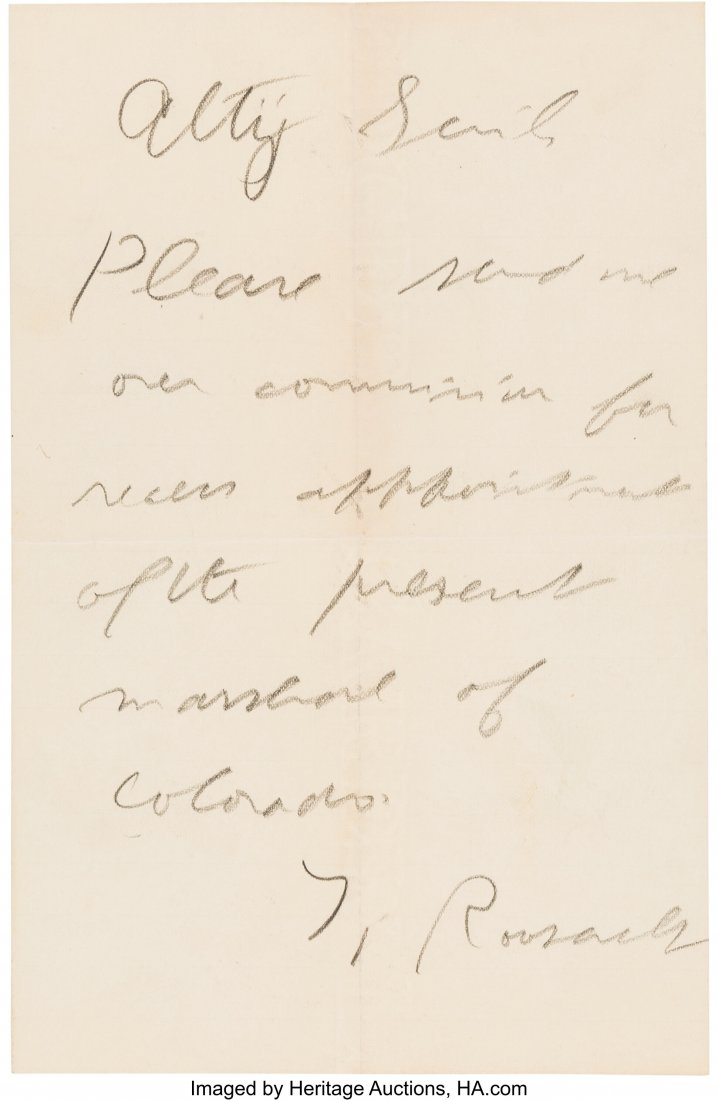 Atty Genl
Please send me
over commission for
recess appointment
of the present
marshal of
Colorado.
T. Roosevelt
Imaged by Heritage Auctions, HA.com